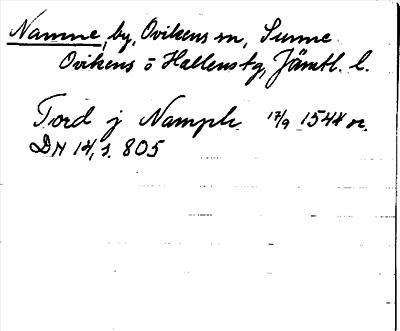 Namne, by, Ovikens sn, Sunne
Ovikens o Hallens tg, Jämtl. l.
Tord j Namph 17/9 1544 or.
DN 14, s. 805